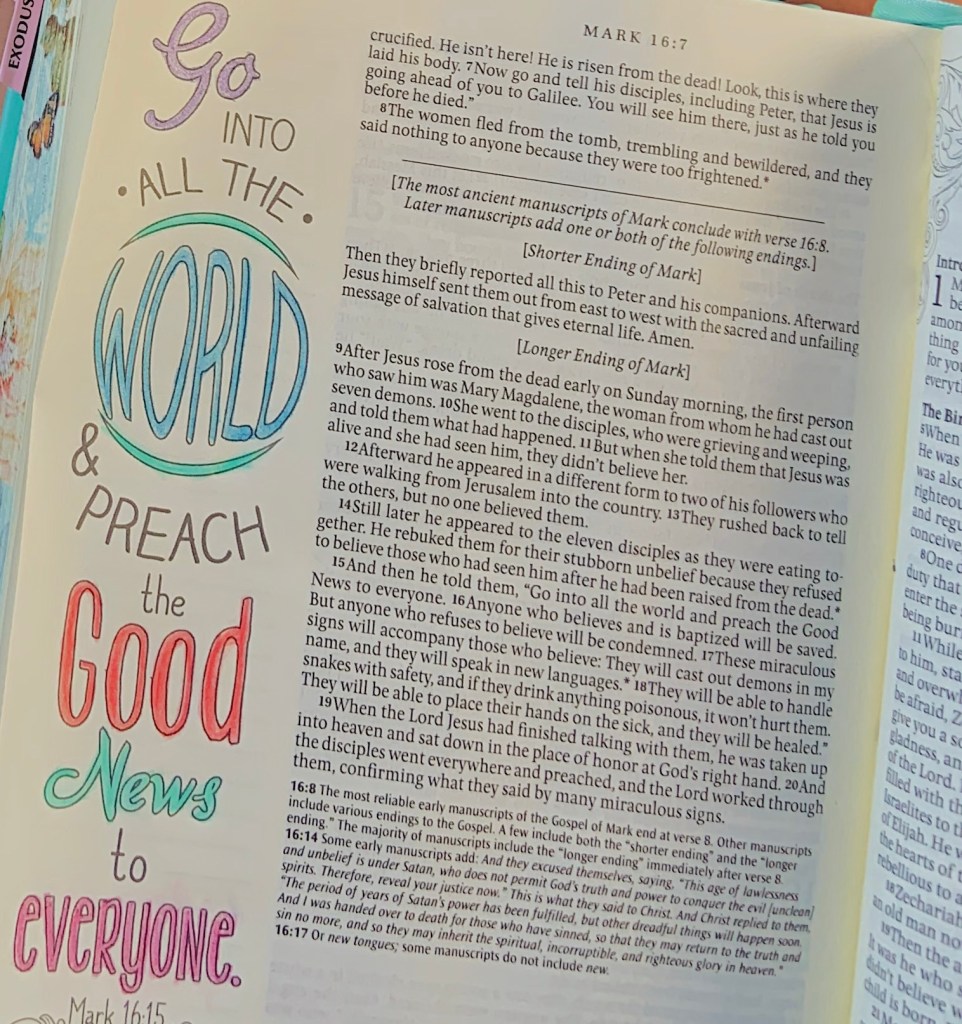 EXODUS
Go
INTO
• ALL THE •
WORLD
&
PREACH
the
Good
News
to
everyone.
Mark 16:15
MARK 16:7
crucified. He isn't here! He is risen from the dead! Look, this is where they
laid his body. 7Now go and tell his disciples, including Peter, that Jesus is
going ahead of you to Galilee. You will see him there, just as he told you
before he died."
8The women fled from the tomb, trembling and bewildered, and they
said nothing to anyone because they were too frightened.*
[The most ancient manuscripts of Mark conclude with verse 16:8.
Later manuscripts add one or both of the following endings.]
[Shorter Ending of Mark]
Then they briefly reported all this to Peter and his companions. Afterward
Jesus himself sent them out from east to west with the sacred and unfailing
message of salvation that gives eternal life. Amen.
[Longer Ending of Mark]
9After Jesus rose from the dead early on Sunday morning, the first person
who saw him was Mary Magdalene, the woman from whom he had cast out
seven demons. 10She went to the disciples, who were grieving and weeping,
and told them what had happened. 11But when she told them that Jesus was
alive and she had seen him, they didn't believe her.
12Afterward he appeared in a different form to two of his followers who
were walking from Jerusalem into the country. 13They rushed back to tell
the others, but no one believed them.
14Still later he appeared to the eleven disciples as they were eating to-
gether. He rebuked them for their stubborn unbelief because they refused
to believe those who had seen him after he had been raised from the dead.*
15And then he told them, "Go into all the world and preach the Good
News to everyone. 16Anyone who believes and is baptized will be saved.
But anyone who refuses to believe will be condemned. 17These miraculous
signs will accompany those who believe: They will cast out demons in my
name, and they will speak in new languages.* 18They will be able to handle
snakes with safety, and if they drink anything poisonous, it won't hurt them.
They will be able to place their hands on the sick, and they will be healed."
19When the Lord Jesus had finished talking with them, he was taken up
into heaven and sat down in the place of honor at God's right hand. 20And
the disciples went everywhere and preached, and the Lord worked through
them, confirming what they said by many miraculous signs.
16:8 The most reliable early manuscripts of the Gospel of Mark end at verse 8. Other manuscripts
include various endings to the Gospel. A few include both the "shorter ending" and the "longer
ending." The majority of manuscripts include the "longer ending" immediately after verse 8.
16:14 Some early manuscripts add: And they excused themselves, saying, "This age of lawlessness
and unbelief is under Satan, who does not permit God's truth and power to conquer the evil [unclean]
spirits. Therefore, reveal your justice now." This is what they said to Christ. And Christ replied to them,
"The period of years of Satan's power has been fulfilled, but other dreadful things will happen soon.
And I was handed over to death for those who have sinned, so that they may return to the truth and
sin no more, and so they may inherit the spiritual, incorruptible, and righteous glory in heaven."
16:17 Or new tongues; some manuscripts do not include new.
Intro
1 M
be
amon
thing
for you
everyt
The Bir
5When
He was
was also
righteou
and regu
conceive
8One d
duty that
enter the
being bur
11While
to him, sta
and overw
be afraid, Z
give you a so
gladness, an
of the Lord.
filled with th
Israelites to th
of Elijah. He w
the hearts of t
rebellious to a
18Zechariah
an old man no
19Then the a
It was he who s
didn't believe w
child is born
21M